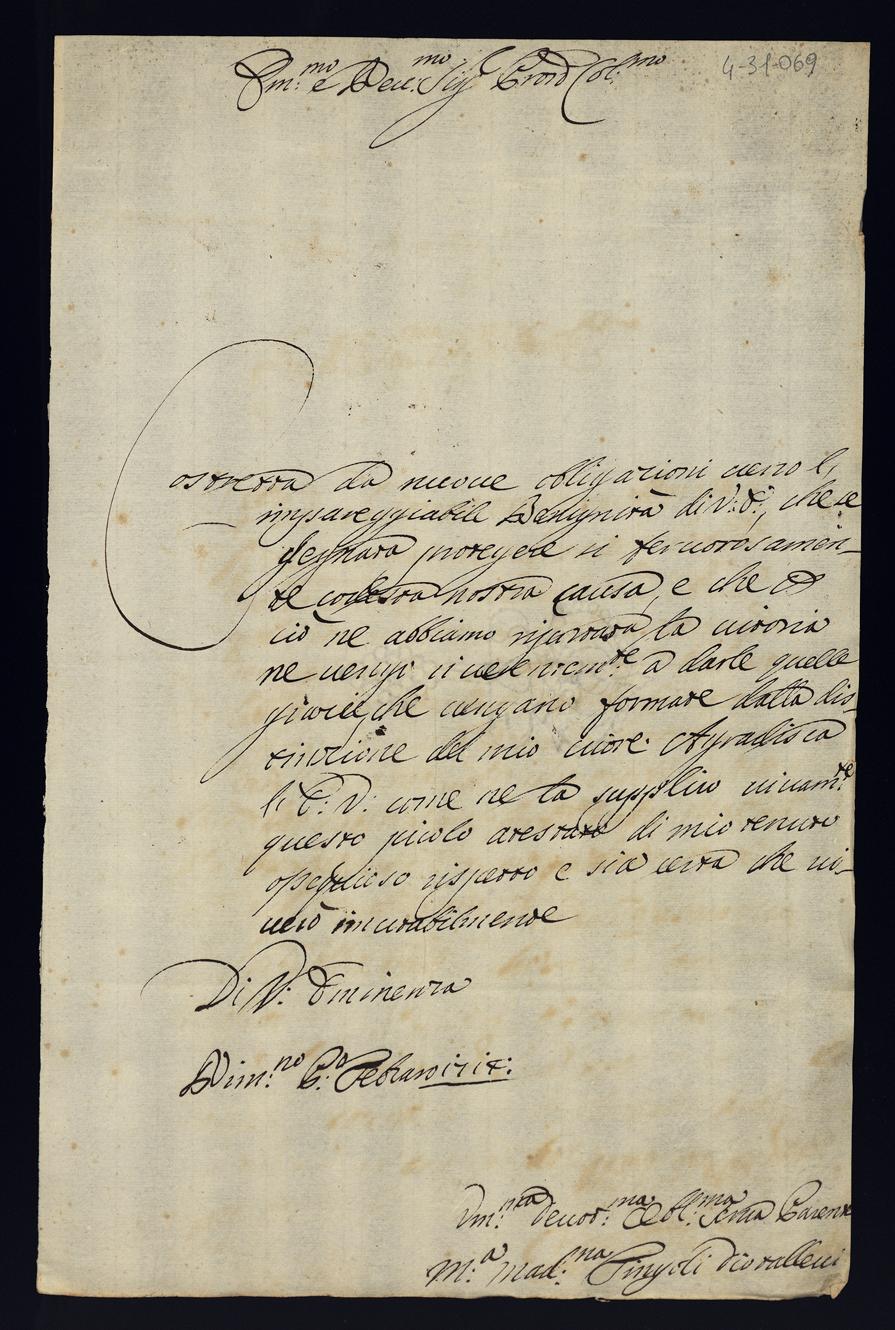 Em:mo e Reu:mo Sig:r Prone Col:mo
4-31-069
Costretta da nuoue obligazioni uerso l'
impareggiabile Benignità di V: E:, che se
degnata protegere si feruorosamen-
te codesta nostra causa, e che
ciò ne abbiamo riportata la uitoria
ne uengo riuerentem:te à darle quelle
grazie, che uengano formate dalla dis-
tinzione del mio cuore. Agradisca
l' E: V: come ne la supplico uiuam:te
questo picolo atestato di mio tenuto
ossequioso rispetto e sia certa che ui-
uerò imutabilmente
Di V: Eminenza
Rim:no P:o Febraro
Vm:ma Deuot:ma Obl:ma Serua Parente
M:a Mad:na Cingoli Diotalleui